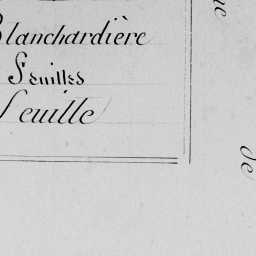 Blanchardière
Feuilles
Feuille
de